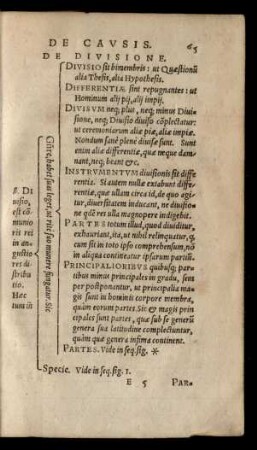 DE CAVSIS. 65
DE DIVISIONE.
DIVISIO sit bimembris: ut Quæstionũ
alia Thesis, alia Hypothesis.
DIFFERENTIÆ sint repugnantes: ut
Hominum alij pij, alij impij.
DIVISVM neq; plus, neq; minus Diui-
sione, neq; Diuisio diuiso cõplectatur:
ut ceremoniarum aliæ piæ, aliæ impiæ.
Nondum sanè plenè diuisæ sunt. Sunt
enim aliæ differentiæ, quæ neque dam-
nant, neq; beant &c.
INSTRVMENTVM diuisionis sit diffe
rentia. Si autem nullæ extabunt diffe-
rentiæ, quæ ullam circa id, de quo agi-
tur, diuersitatem inducant, ne diuisio-
ne quidẽ res ulla magnopere indigebit.
PARTES totum illud, quod diuiditur,
exhauriant, ita, ut nihil relinquatur, q̃
cum sit in toto ipso comprehensum, nõ
in aliqua contineatur ipsarum partiũ.
PRINCIPALIORIBVS quibusq; par-
tibus minus principales in gradu, sunt
per postponantur, ut principalia ma-
gis sunt in hominis corpore membra,
quàm eorum partes. Sic & magis prin
cipales sunt partes, quæ sub se generũ
genera sua latitudine complectuntur,
quàm quæ genera infima continent.
PARTES. Vide in seq. fig. *
Genere, habet suas leges, ut ritè suo munere fungatur. Sic
Di
uisio,
est cõ
munio
ris rei
in an
gustio
res di
stribu
tio.
Hæc
tum in
Specie. Vide in seq. fig. 1.
E 5 PAR-